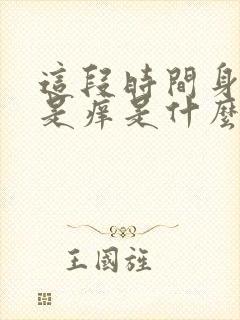 這段時間身
是痒是什麼
王國旌